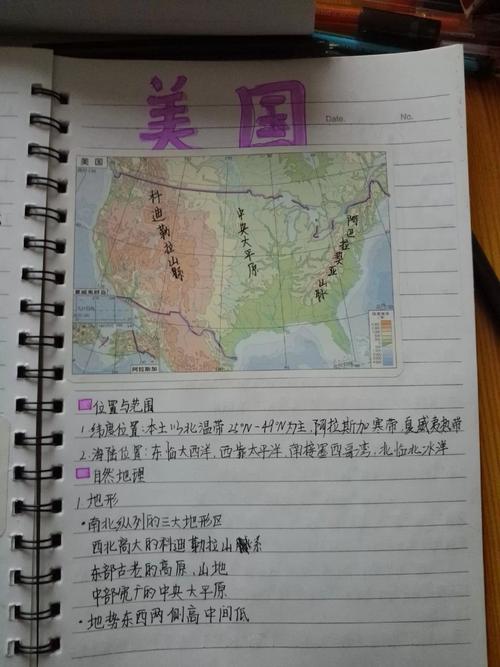 美国
Date.
No.
美国
科迪勒拉山脉
中央大平原
阿巴拉契亚山脉
夏威夷群岛
阿拉斯加
位置与范围
1.纬度位置:本土以北温带25°N-49°N为主,阿拉斯加寒带,夏威夷热带
2.海陆位置:东临大西洋,西靠太平洋,南接墨西哥湾,北临北冰洋
自然地理
1.地形
•南北纵列的三大地形区
西北高大的科迪勒拉山系
东部古老的高原、山地
中部宽广的中央大平原
•地势东西两侧高中间低